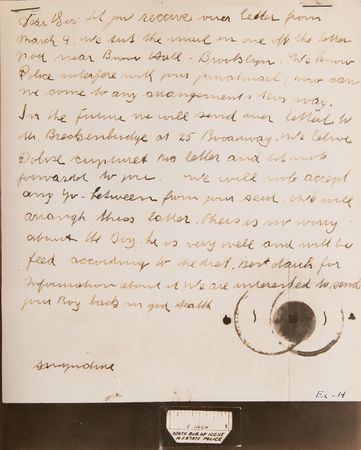 Dear Sir: Did you receive ouer letter from
March 4. we sent the mail in one off the letter
near Boro Hall - Brooklyn. We know
Police interfere with your privatmail; how can
we come to any arrangements this way.
In the future we will send ouer letters to
Mr. Breckenbridge at 25 Broadway. We belive
Polise captured two letter and let not
forwarded to you. We will not accept
any go-between from your seid. We will
arrangh theas latter. There is no worry
about the Boy. he is very well and will be
feed according to the diet. Best dank for
Information about it. We are interested to send
your Boy back in gud health
singnature
Ex-14
1 INCH
STATE BUR. OF IDENT.
N.J. STATE POLICE